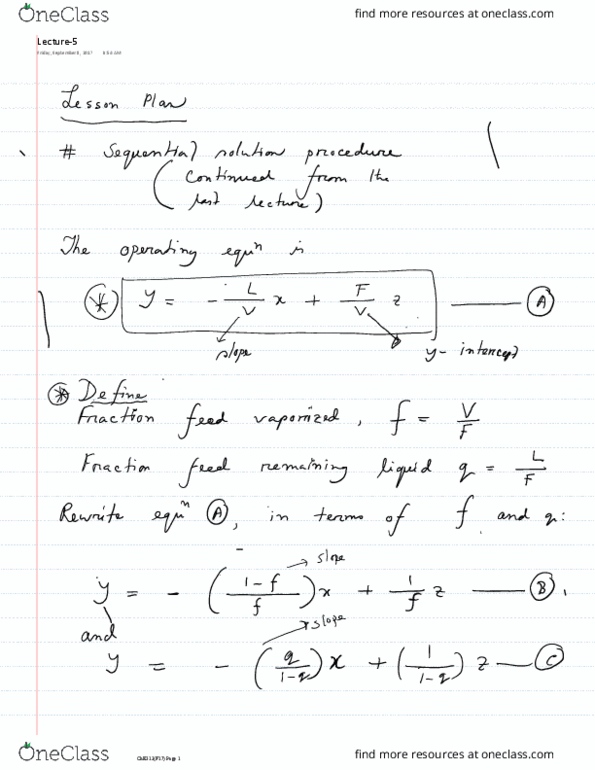 OneClass find more resources at oneclass.com
Lecture-5
Friday, September 8, 2017
Lesson Plan
# Sequential solution procedure
(continued from the
last lecture)
The operating equⁿ is
y = - L/V x + F/V z —— (A)
slope y-intercept
Define
Fraction feed vaporized, f = V/F
Fraction feed remaining liquid q = L/F
Rewrite equⁿ (A), in terms of f and q:
slope
y = - ((1-f)/f) x + 1/f z —— (B).
and slope
y = - (q/(1-q)) x + (1/(1-q)) z — (C)
OneClass Page 1 find more resources at oneclass.com